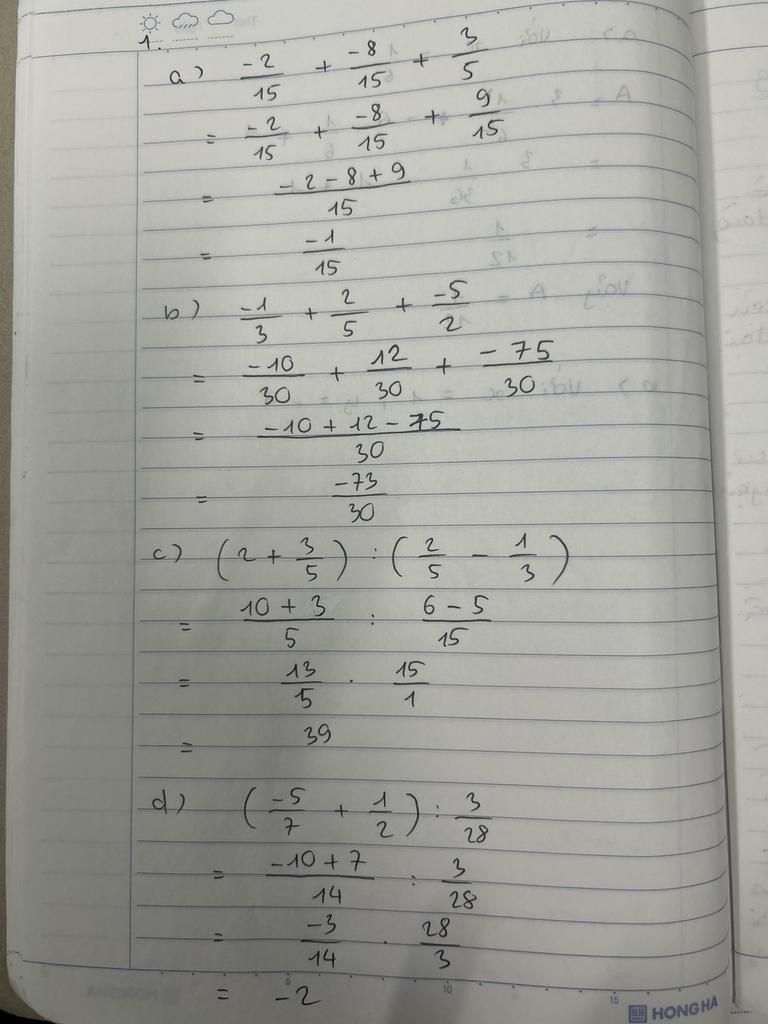 1.
a) -2/15 + -8/15 + 3/5
= -2/15 + -8/15 + 9/15
= (-2 - 8 + 9)/15
= -1/15
b) -1/3 + 2/5 + -5/2
= -10/30 + 12/30 + -75/30
= (-10 + 12 - 75)/30
= -73/30
c) (2 + 3/5) : (2/5 - 1/3)
= (10 + 3)/5 : (6 - 5)/15
= 13/5 . 15/1
= 39
d) (-5/7 + 1/2) : 3/28
= (-10 + 7)/14 : 3/28
= -3/14 . 28/3
= -2
5 10 15
HH HONG HA